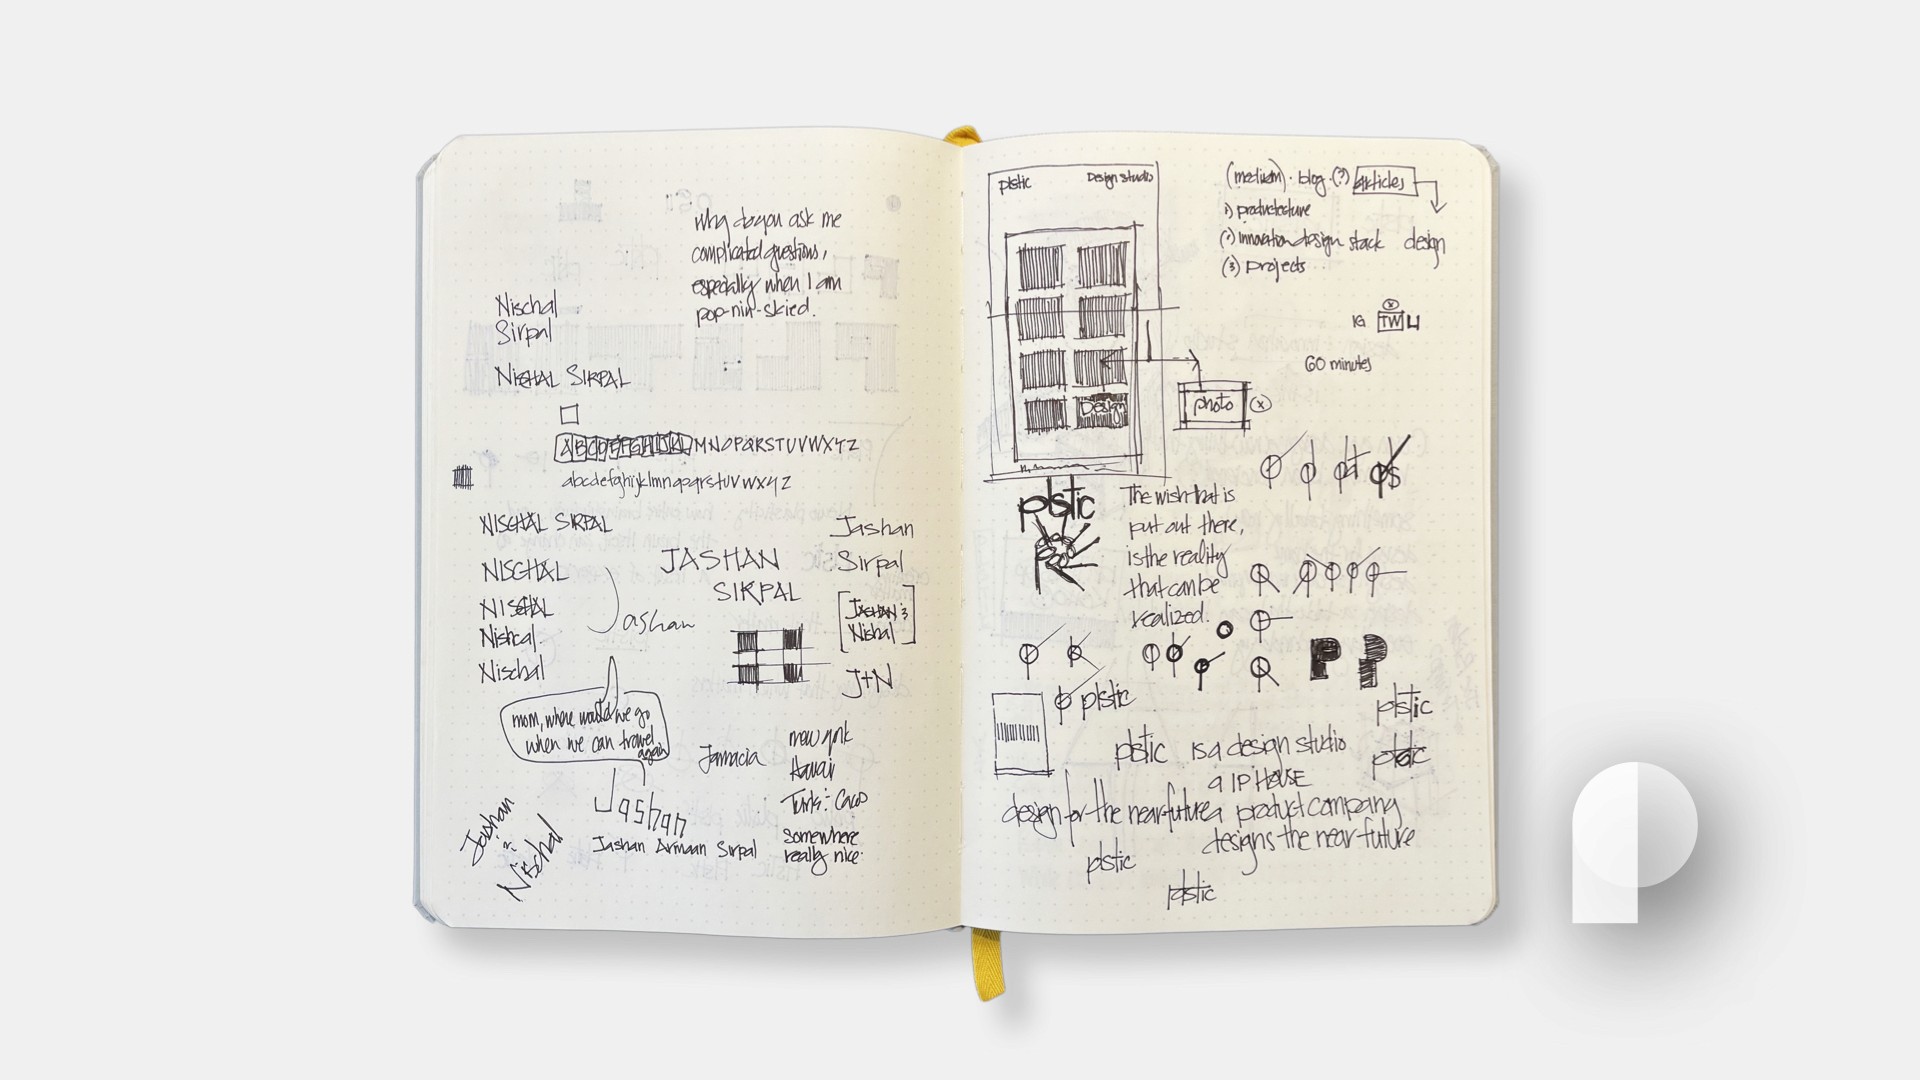 why do you ask me
complicated questions,
especially when I am
pop-nin-skied.
Nischal
Sirpal
NISCHAL SIRPAL
ABCDEFGHIJKLMNOPQRSTUVWXYZ
abcdefghijklmnopqrstuvwxyz
NISCHAL SIRPAL
NISCHAL
NISCHAL
Nishcal
Nischal
Jashan
JASHAN
SIRPAL
Jashan
Sirpal
JASHAN &
Nishal
J+N
mom, where would we go
when we can travel
again
Jashan
Jashan Armaan Sirpal
Jashan
&
Nischal
Jamacia
new york
Hawaii
Turks & Caco
somewhere
really nice
plstic
Design studio
Design
photo
x
(medium) · blog · (?) articles
1) productecture
(2) innovation design stack design
(3) projects
x
IG TW LI
60 minutes
plstic
The wish that is
put out there,
is the reality
that can be
realized.
P P
plstic
plstic
plstic is a design studio
a IP HOUSE
design for the near-future a product company
designs the near-future
plstic
plstic